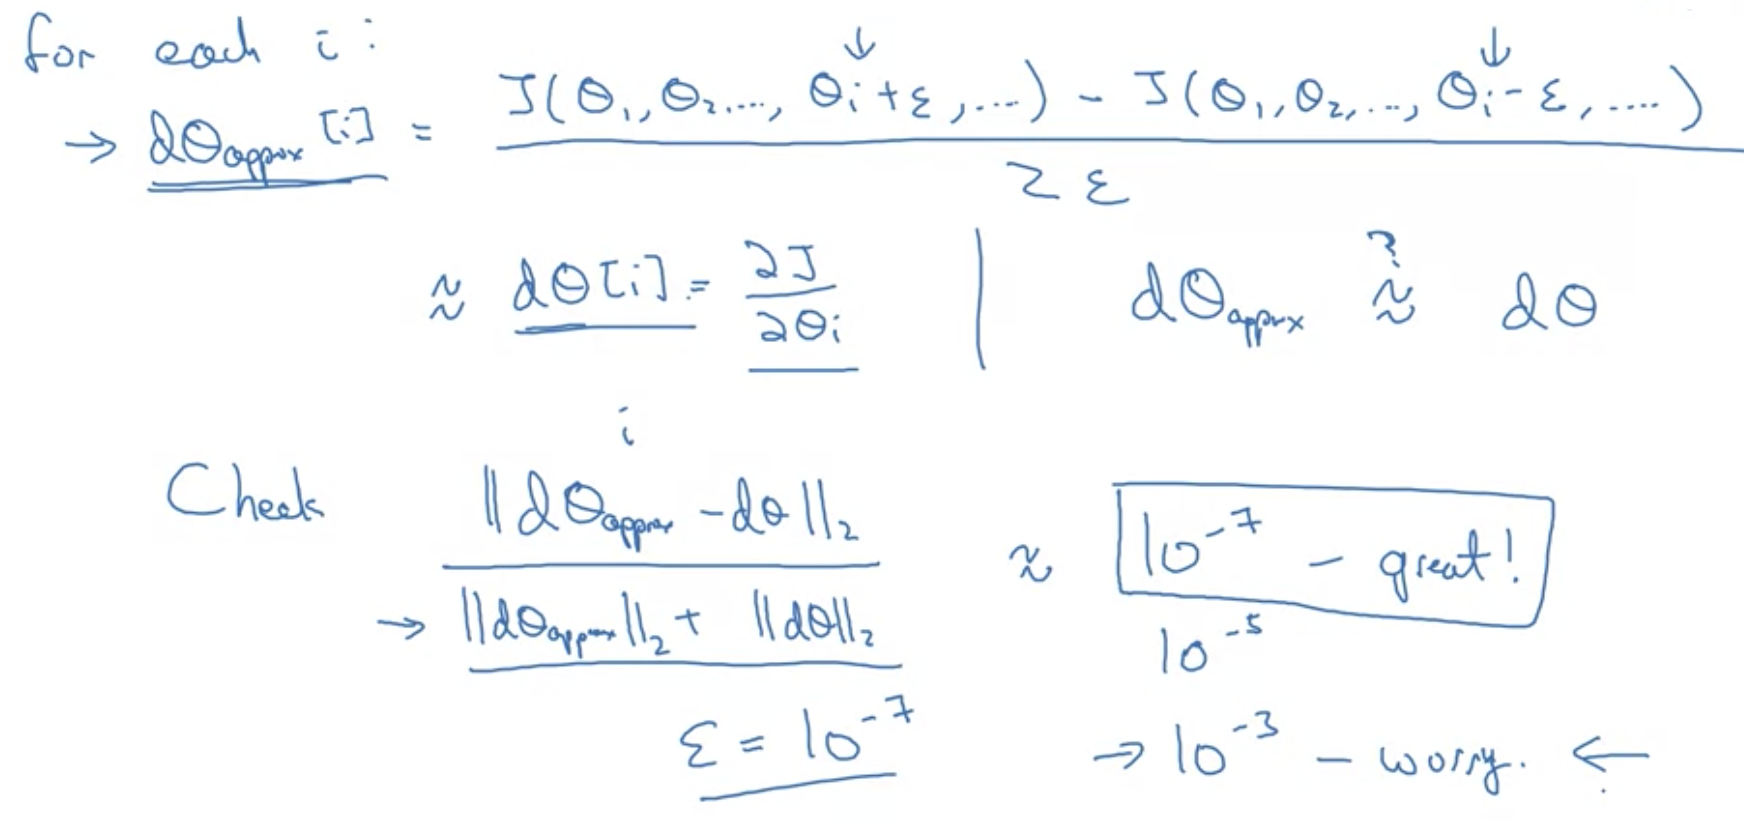 for each i:
→ dθapprox[i] = J(θ₁, θ₂, ..., θᵢ+ε, ....) - J(θ₁, θ₂, ..., θᵢ-ε, ....) / 2ε
≈ dθ[i] = ∂J/∂θᵢ | dθapprox ≈? dθ
i
Check ||dθapprox - dθ||₂ / → ||dθapprox||₂ + ||dθ||₂ ≈ 10⁻⁷ - great!
10⁻⁵
ε = 10⁻⁷ → 10⁻³ - worry. ←